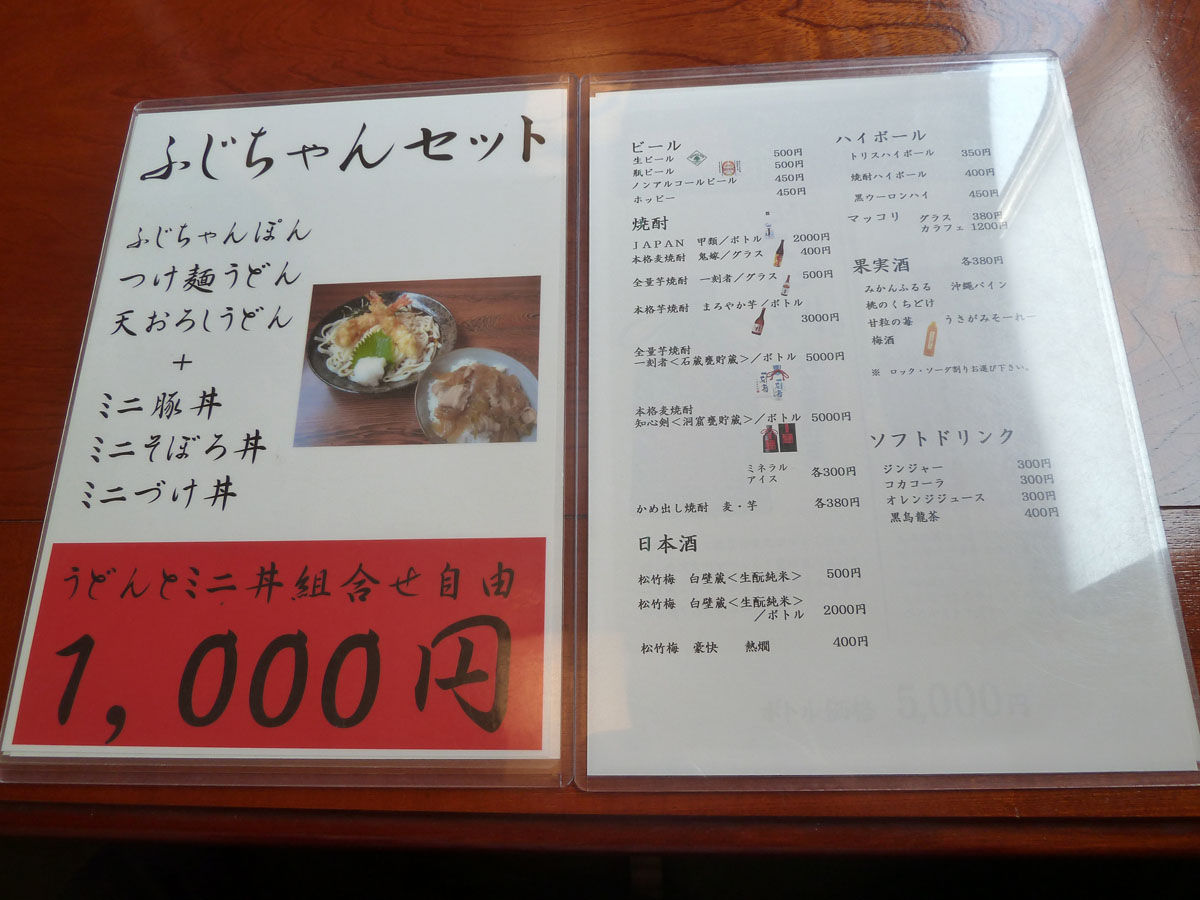 ふじちゃんセット
ふじちゃんぽん
つけ麺うどん
天おろしうどん
+
ミニ豚丼
ミニそぼろ丼
ミニづけ丼
うどんとミニ丼組合せ自由
1,000円
ビール
生ビール 500円
瓶ビール 500円
ノンアルコールビール 450円
ホッピー 450円
焼酎
JAPAN 甲類/ボトル 2000円
本格麦焼酎 鬼嫁/グラス 400円
全量芋焼酎 一刻者/グラス 500円
本格芋焼酎 まろやか芋/ボトル
3000円
全量芋焼酎
一刻者<石蔵甕貯蔵>/ボトル 5000円
本格麦焼酎
知心剣<洞窟甕貯蔵>/ボトル 5000円
ミネラル
アイス 各300円
かめ出し焼酎 麦・芋 各380円
日本酒
松竹梅 白壁蔵<生酛純米> 500円
松竹梅 白壁蔵<生酛純米>
/ボトル 2000円
松竹梅 豪快 熱燗 400円
ハイボール
トリスハイボール 350円
焼酎ハイボール 400円
黒ウーロンハイ 450円
マッコリ グラス 380円
カラフェ 1200円
果実酒 各380円
みかんふるる 沖縄パイン
桃のくちどけ
甘粒の苺 うさがみそーれー
梅酒
※ ロック・ソーダ割りお選び下さい。
ソフトドリンク
ジンジャー 300円
コカコーラ 300円
オレンジジュース 300円
黒烏龍茶 400円
ボトル価格 5,000円